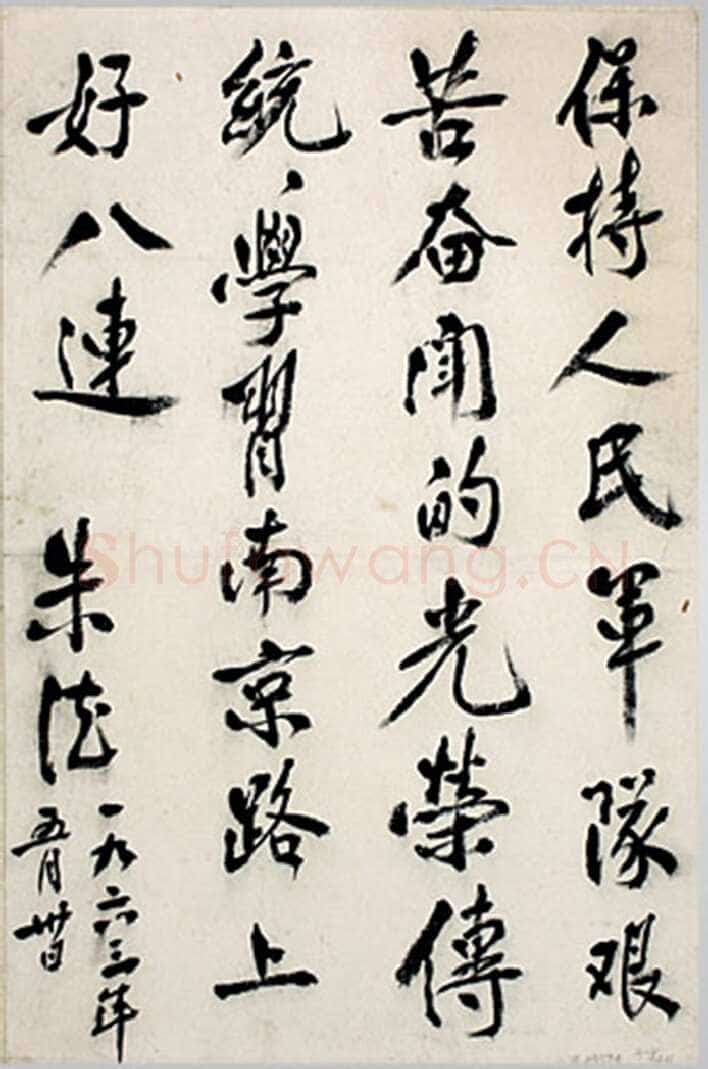 保持人民军隊艰
苦奋闘的光榮傳
統、學習南京路上
好八連 朱德
一九六三年
五月卅日
Shufawang.CN